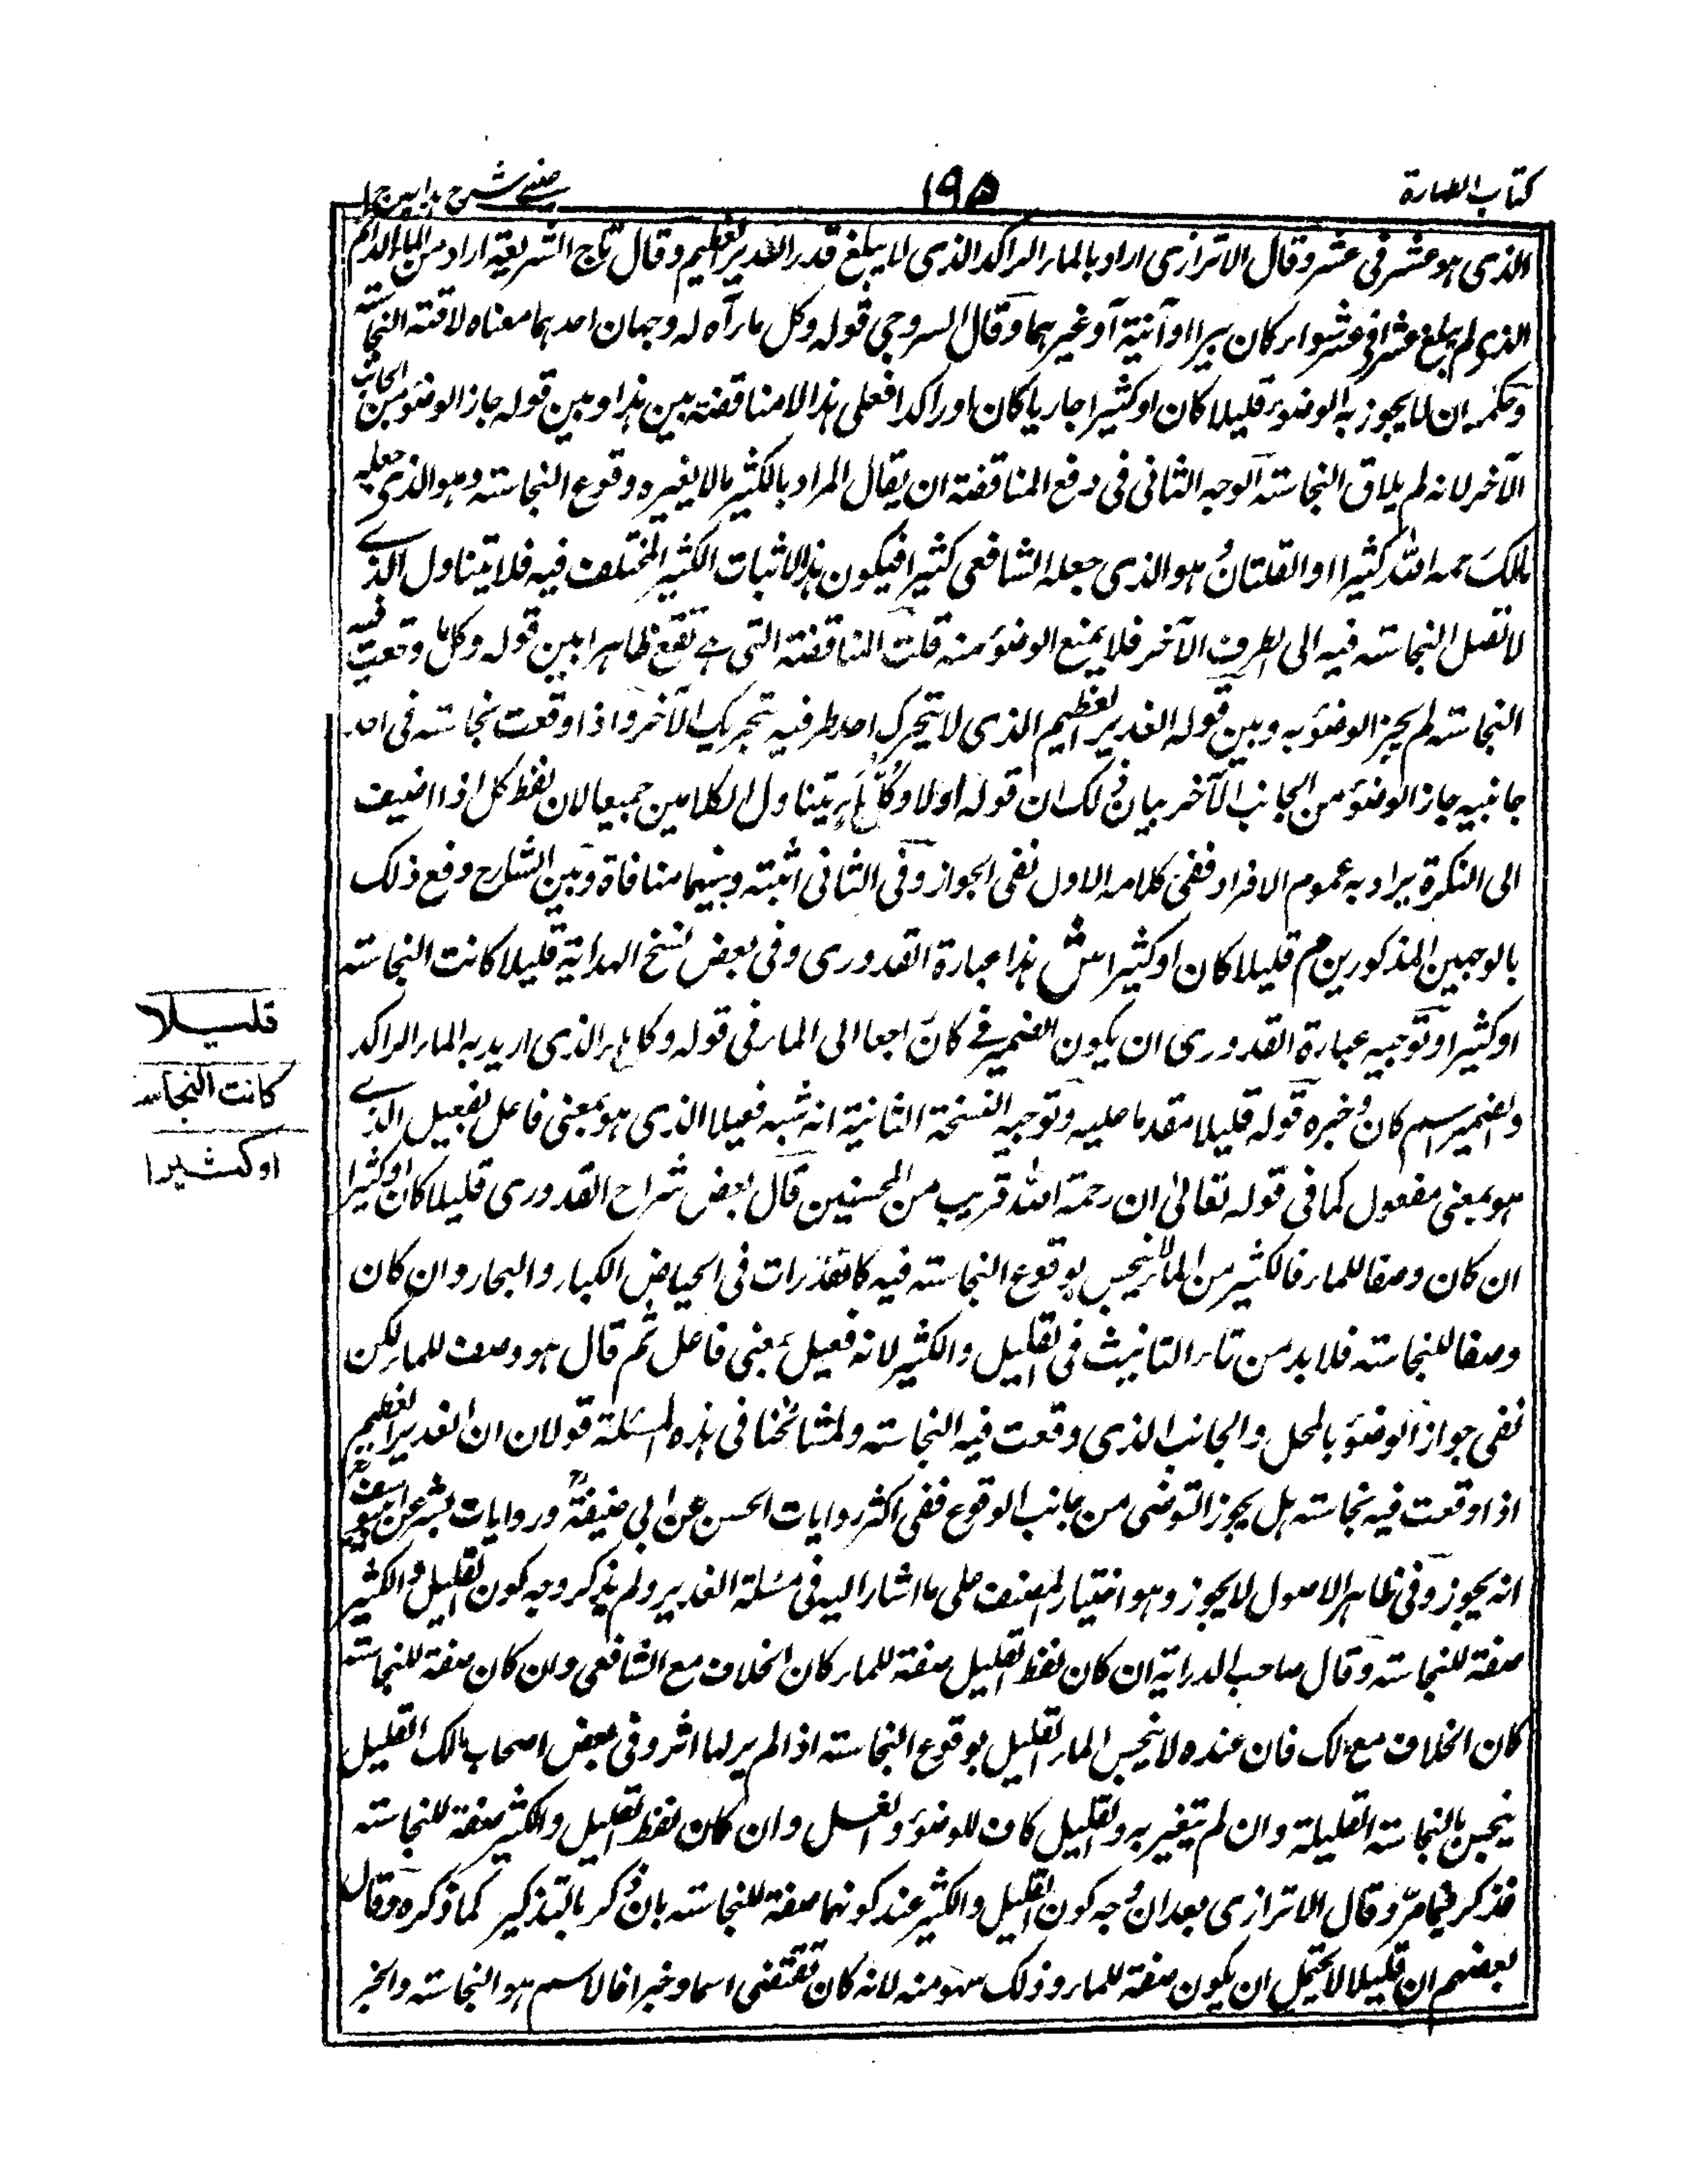 كتاب الطهارة
١٩٥
عینی شرح ہدایہ ج ١
الذى هو عشر فى عشر وقال الاترازى اراد بالماء الراكد الذى لا يبلغ قدر الغدير العظيم وقال تاج الشريعة اراد من الماء الدائم
الذى لم يبلغ عشرا فى عشر سواء كان بيرا او آنية او غيرهما وقال السروجى قوله وكل ماء رآه له وجهان احدهما معناه لاقته النجاسة
وحكمه ان لا يجوز به الوضوء قليلا كان او كثيرا جاريا كان او راكدا فعلى هذا لا مناقضة بين هذا وبين قوله جاز الوضوء من الجانب
الآخر لانه لم يلاق النجاسة الوجه الثانى فى دفع المناقضة ان يقال المراد بالكثير ما لا يغيره وقوع النجاسة وهو الذى جعله
مالك رحمه الله كثيرا او القلتان هو الذى جعله الشافعى كثيرا فيكون هذا لاثبات الكثير المختلف فيه فلا يتناول الذى
لا تصل النجاسة فيه الى الطرف الآخر فلا يمنع الوضوء منه قلت المناقضة التى هى تقع ظاهرا بين قوله وكل ما وقعت فيه
النجاسة لم يجز الوضوء به وبين قوله الغدير العظيم الذى لا يتحرك احد طرفيه بتحريك الآخر واذا وقعت نجاسة فى احد
جانبيه جاز الوضوء من الجانب الآخر بيان ذلك ان قوله اولا وكل ماء يتناول الكلامين جميعا لان لفظ كل اذا اضيف
الى النكرة يراد به عموم الافراد ففى كلامه الاول نفى الجواز وفى الثانى اثبته وبينهما منافاة وبين الشارح وقع ذلك
بالوجهين المذكورين م قليلا كان او كثيرا ش هذا عبارة القدورى وفى بعض نسخ الهداية قليلا كانت النجاسة
او كثيرا وتوجيه عبارة القدورى ان يكون الضمير فى كان راجعا الى الماء فى قوله وكل ماء الذى اريد به الماء الراكد
والضمير اسم كان وخبره قوله قليلا مقدما عليه وتوجيه النسخة الثانية انه شبه فعيلا الذى هو بمعنى فاعل بفعيل الذى
هو بمعنى مفعول كما فى قوله تعالى ان رحمة الله قريب من المحسنين قال بعض شراح القدورى قليلا كان او كثيرا
ان كان وصفا للماء فالكثير من الماء لا ينجس بوقوع النجاسة فيه كالقذرات فى الحياض الكبار والبحار وان كان
وصفا للنجاسة فلا بد من تاء التانيث فى القليل والكثير لانه فعيل بمعنى فاعل ثم قال هو وصف للماء لكن
نفى جواز الوضوء بالمحل والجانب الذى وقعت فيه النجاسة ولمشائخنا فى هذه المسئلة قولان ان الغدير العظيم
اذا وقعت فيه نجاسة هل يجوز التوضى من جانب الوقوع ففى اكثر روايات الحسن عن ابى حنيفةؒ وروايات بشر عن ابى يوسف
انه يجوز وفى ظاهر الاصول لا يجوز وهو اختيار المصنف على ما اشار اليه فى مسئلة الغدير ولم يذكر وجه كون القليل والكثير
صفة للنجاسة وقال صاحب الدراية ان كان لفظ القليل صفة للماء كان الخلاف مع الشافعى وان كان صفة للنجاسة
كان الخلاف مع مالك فان عنده لا ينجس الماء القليل بوقوع النجاسة اذا لم ير لها اثر وفى بعض اصحاب مالك القليل
ينجس بالنجاسة القليلة وان لم يتغير به والقليل كاف للوضوء والغسل وان كان لفظ القليل والكثير صفة للنجاسة
فذكر فيما مر وقال الاترازى بعد ان وجه كون القليل والكثير عند كونهما صفة للنجاسة بان ذكر بالتذكير كما ذكره وقال
بعضهم ان قليلا لا يحتمل ان يكون صفة للماء وذلك سهو منه لانه كان تقتضى اسما وخبرا فالاسم هو النجاسة والخبر
قليلا
كانت النجاسة
او كثيرا